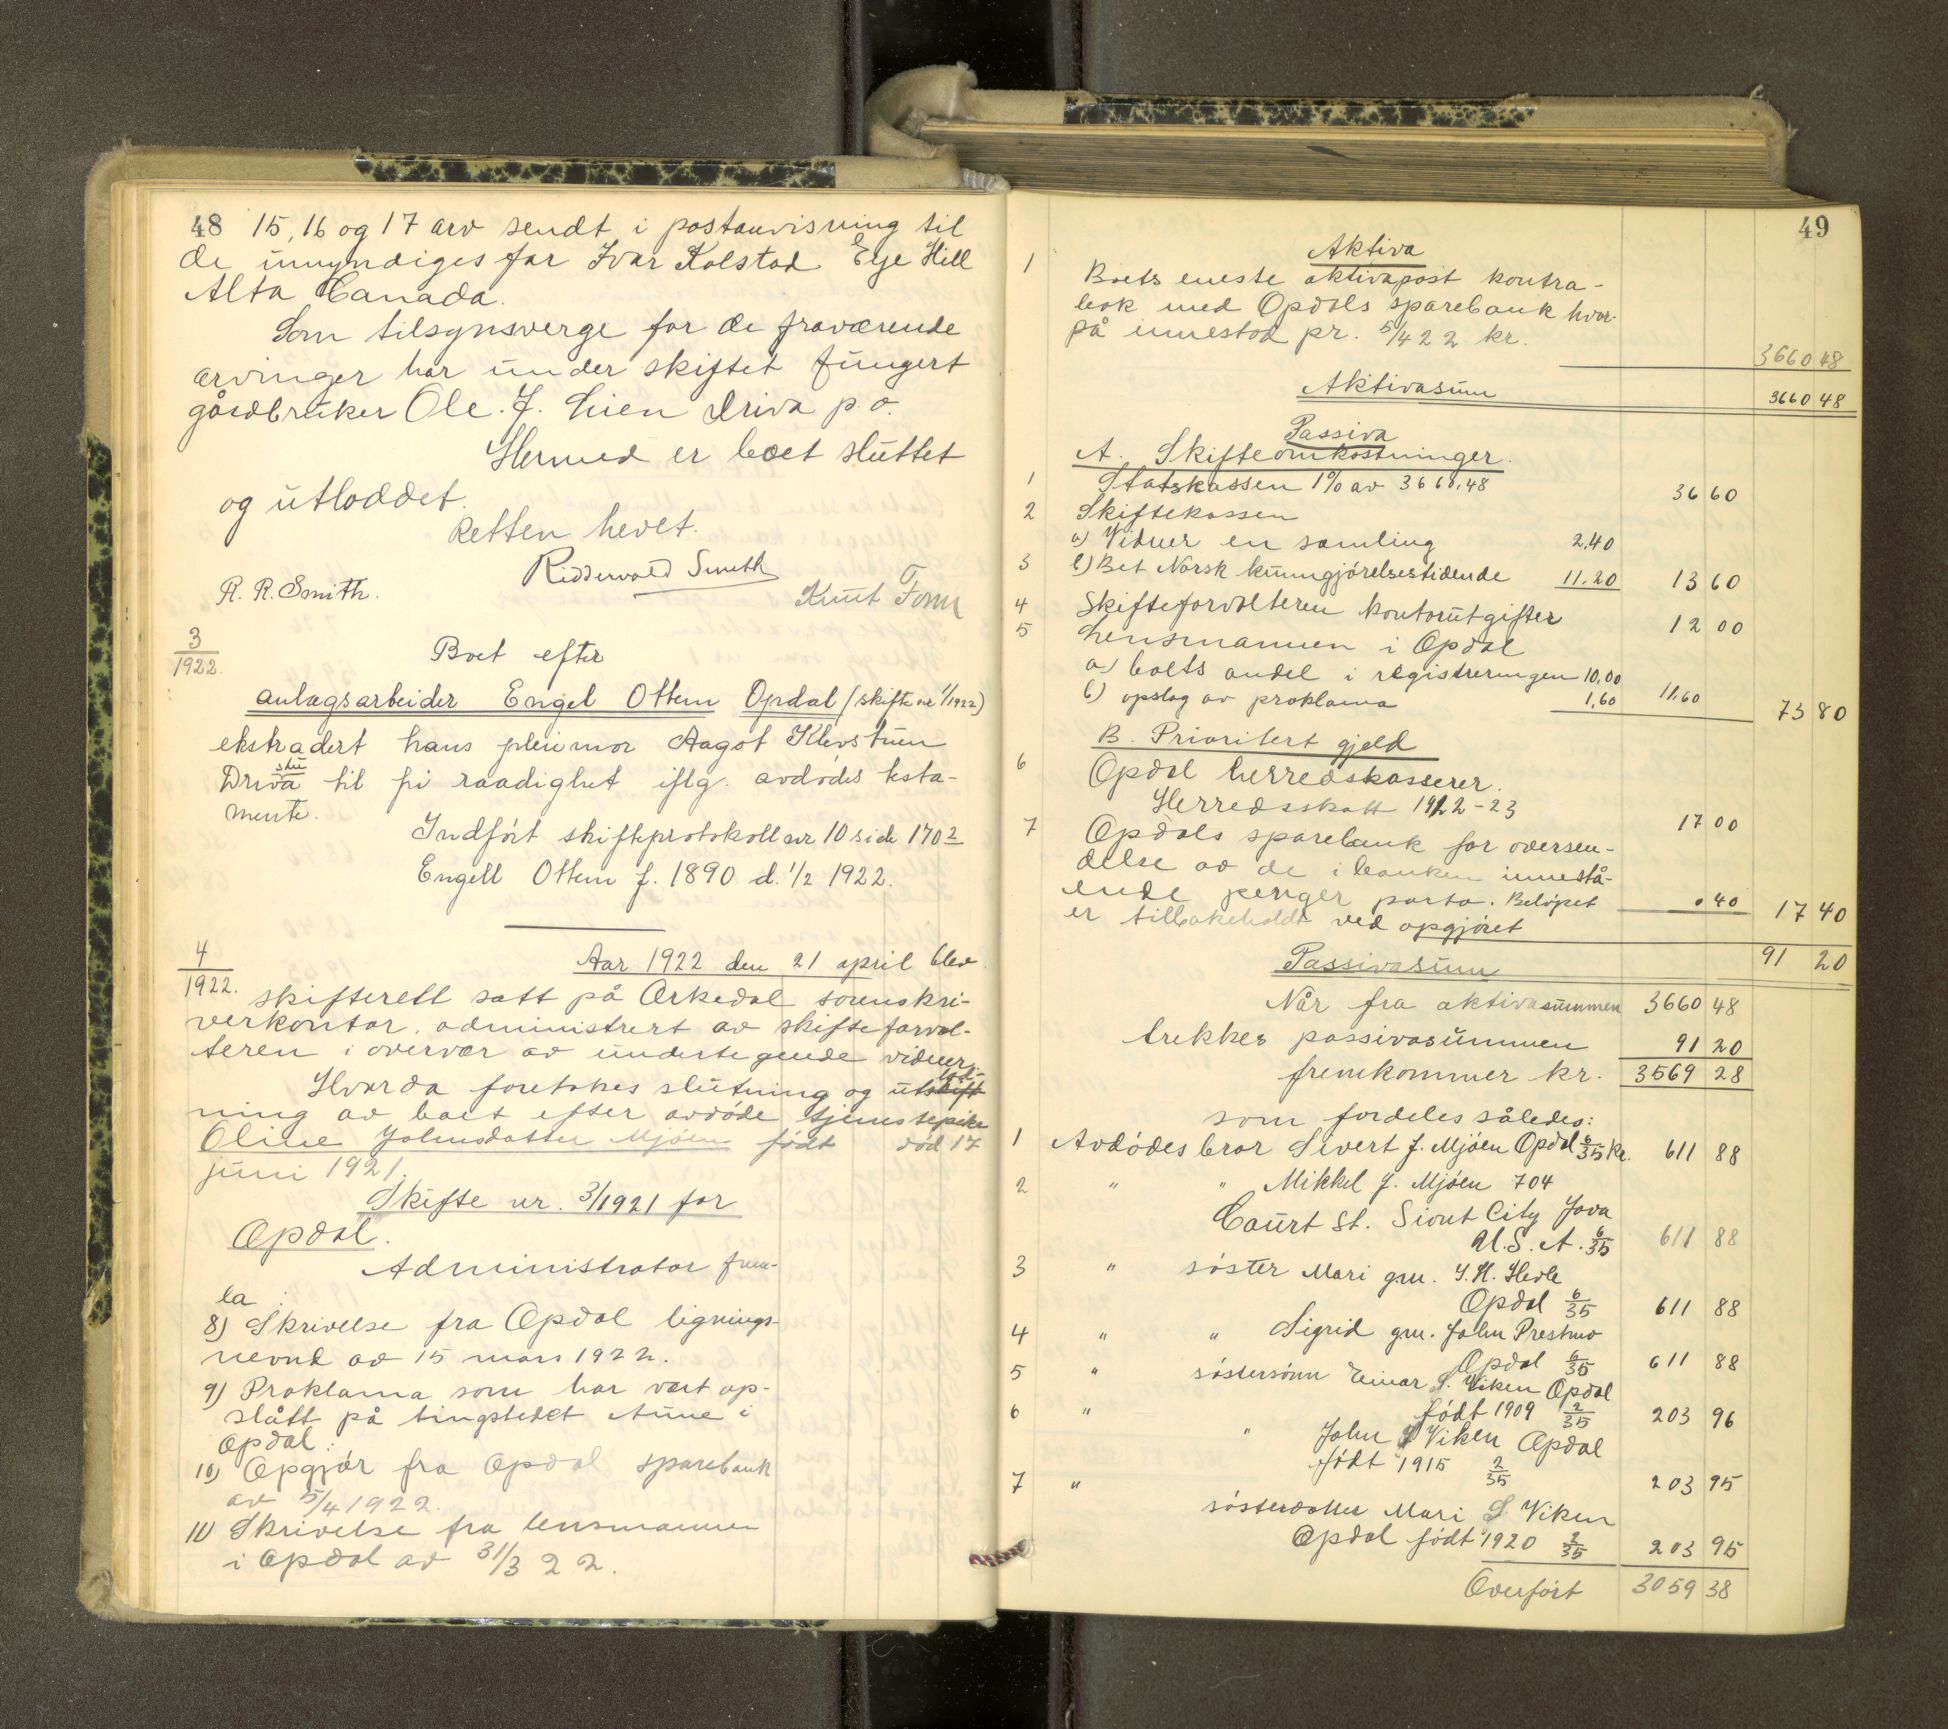 48 15, 16 og 17 arv sendt i postanvisning til
de umyndiges far Ivar Kolstad Eye Hill
Alta Canada.
Som tilsynsverge for de fraværende
arvinger har under skiftet fungert
gårdbruker Ole. J. Lien Driva p.o.
Hermed er boet sluttet
og utloddet.
Retten hevet.
Riddervold Smith
R. R. Smith. Knut Fonn
3/1922.
Boet efter
anlægsarbeider Engel Ottem Opdal (skifte nr 1/1922)
ekstradert hans pleiemor Aagot Klevstuen
Driva st. til fri raadighet iflg. avdødes testa-
mente.
Indført skifteprotokoll nr 10 side 170
Engell Ottem f. 1890 d. 1/2 1922.
4/1922.
Aar 1922 den 21 april blev
skifterett satt på Orkedal sorenskri-
verkontor, administrert av skifteforval-
teren i overvær av undertegnede vidner
Hvorda foretokes slutning og utskift lod-
ning av boet efter avdøde tjenestepike
Oline Johnsdatter Mjöen født død 17
juni 1921.
Skifte nr. 3/1921 for
Opdal.
Administrator frem-
la :
8) Skrivelse fra Opdal lignings-
nevnd av 15 mars 1922.
9) Proklama som har vært op-
slått på tingstedet Aune i
Opdal:
10) Opgjør fra Opdal sparebank
av 5/4 1922.
11) Skrivelse fra lensmannen
i Opdal av 31/3 22.
49
Aktiva
1 Boets eneste aktivapost kontra-
bok med Opdals sparebank hvor-
på innestod pr. 5/4 22 kr.
3660 48
Aktivasum 3660 48
Passiva
A. Skifteomkostninger.
1 Statskassen 1% av 3660,48 36 60
2 Skiftekassen
a) Vidner en samling 2.40
3 b) Bet Norsk kunngjörelsestidende 11.20 13 60
4 Skifteforvalteren kontorutgifter 12 00
5 Lensmannen i Opdal
a) boets andel i registreringen 10,00
b) opslag av proklama 1,60 11.60
73 80
B. Prioritert gjeld
6 Opdal herredskasserer.
Herredsskatt 1922-23 17 00
7 Opdals sparebank for oversen-
delse av de i banken innestå-
ende penger porto. Beløpet 0 40 17 40
er tilbakeholdt ved opgjöret
Passivasum 91 20
Når fra aktivasummen 3660 48
trekkes passivasummen 91 20
fremkommer kr. 3569 28
som fordeles således:
1 Avdødes bror Sivert J. Mjöen Opdal 6/35 kr. 611 88
2 " " Mikkel J. Mjöen 704
Court St. Siout City Jova
U.S.A. 6/35 611 88
3 " søster Mari gm. J. H. Hevle
Opdal 6/35 611 88
4 " " Sigrid gm. John Prestmo
Opdal 6/35 611 88
5 " søstersønn Einar S. Viken Opdal
født 1909 2/35 203 96
6 " " John S Viken Opdal
født 1915 2/35 203 95
7 " søsterdatter Mari S. Viken
Opdal født 1920 2/35 203 95
Overført 3059 38